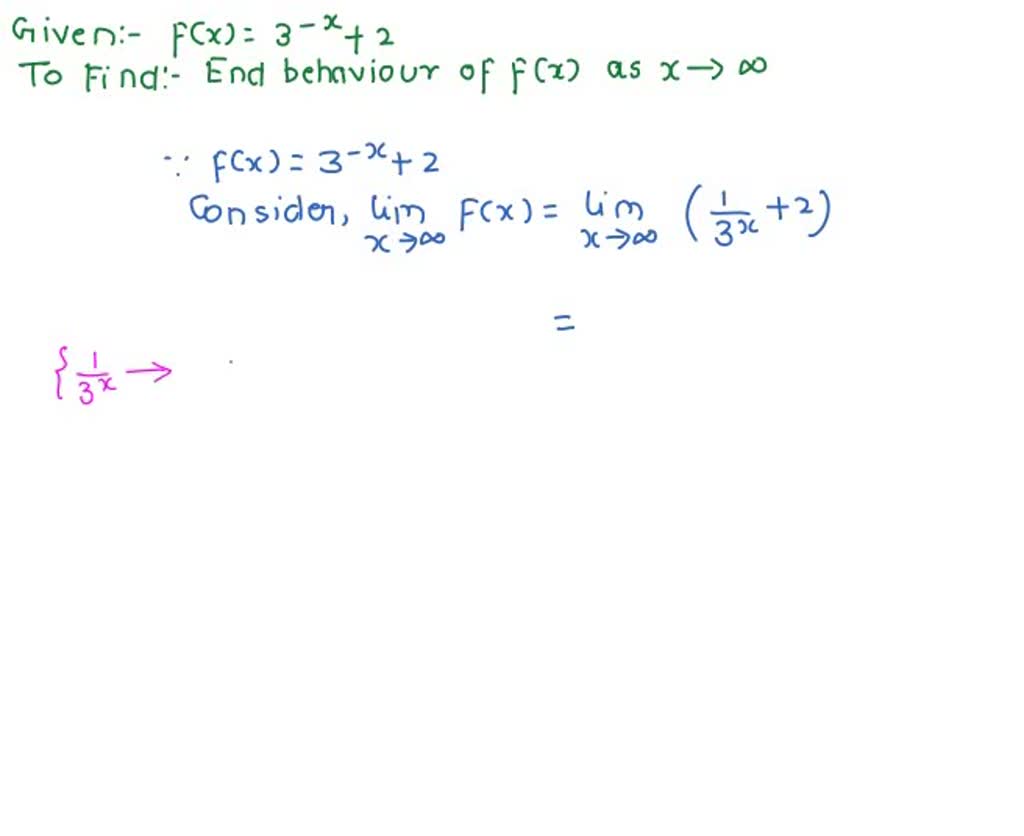 Given:- f(x) = 3^-x + 2
To Find:- End behaviour of f(x) as x → ∞
∵ f(x) = 3^-x + 2
Consider, lim x→∞ F(x) = lim x→∞ (1/3^x + 2)
=
{1/3^x →